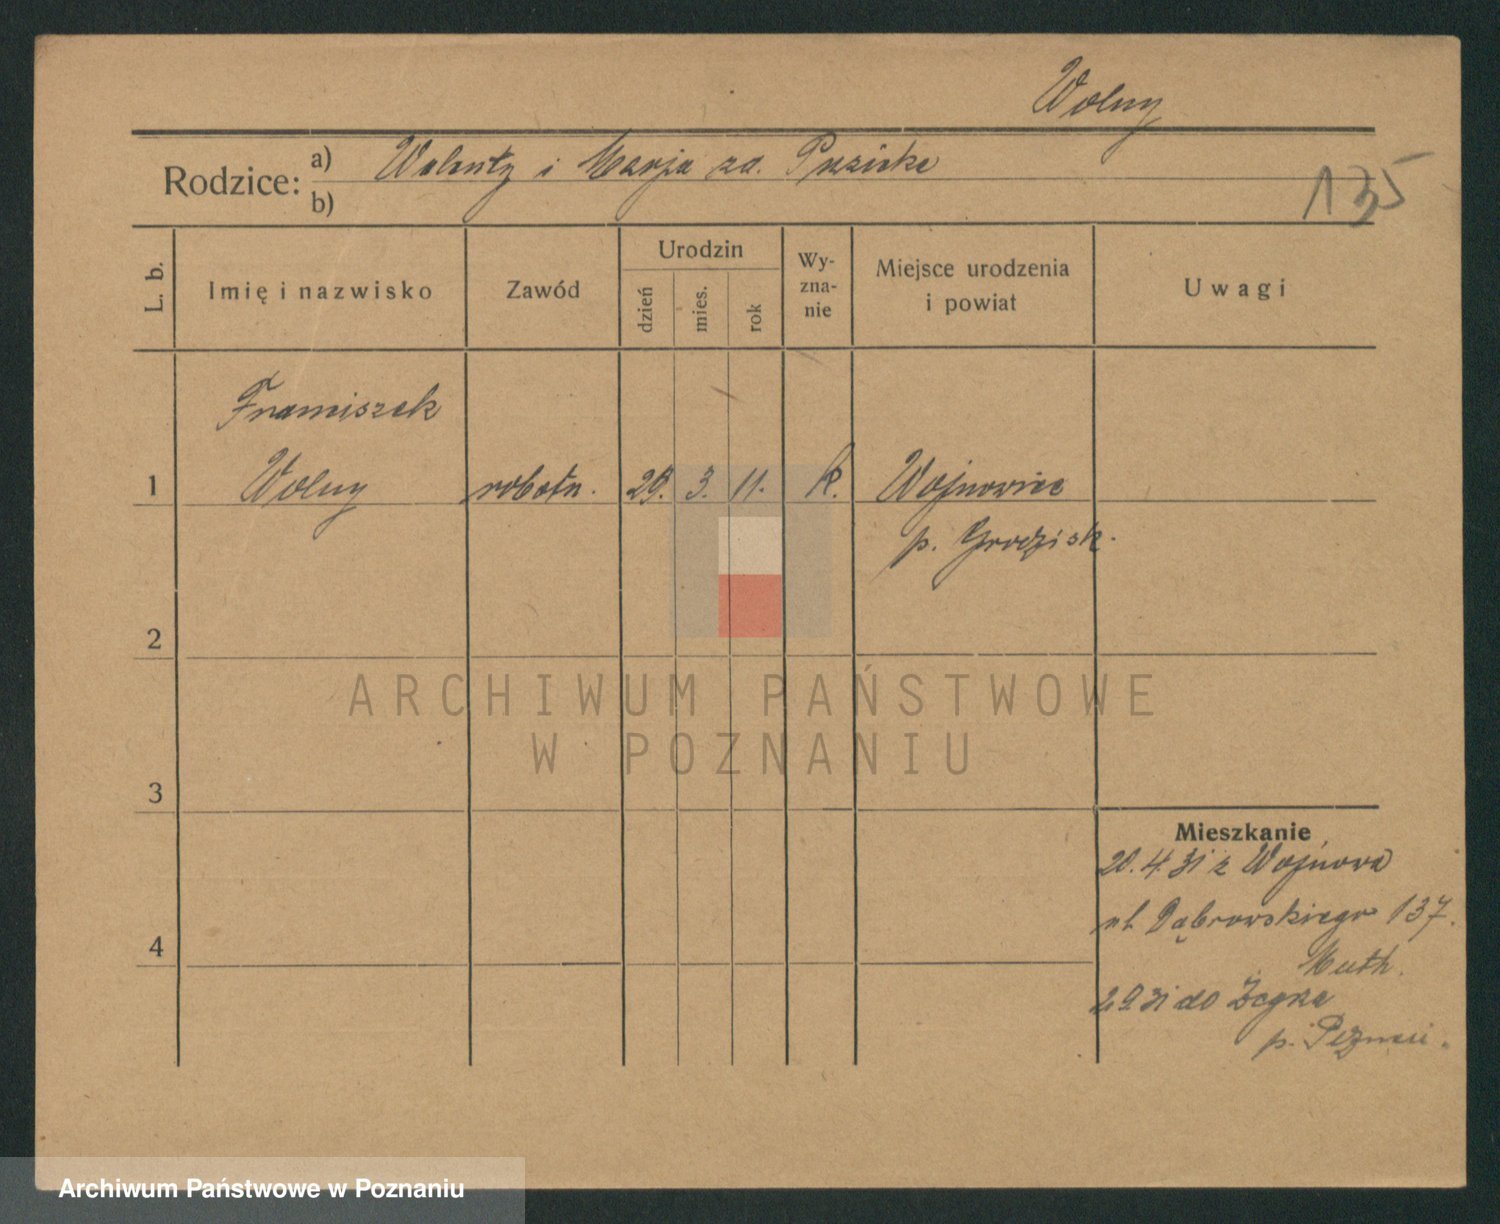 Wolny
Rodzice: a) Walenty i Marja zd.
b)
135
L. b.
Imię i nazwisko
Zawód
Urodzin
dzień
mies.
rok
Wy-
zna-
nie
Miejsce urodzenia
i powiat
Uwagi
Franciszek
1 Wolny robotn. 29. 3. 11. k. Wojnowice
p. Grodzisk.
2
3
4
Mieszkanie
20.4.31 z Wojnowa
ul. Dąbrowskiego 137.
Muth.
do
p.
ARCHIWUM PAŃSTWOWE
W POZNANIU
Archiwum Państwowe w Poznaniu